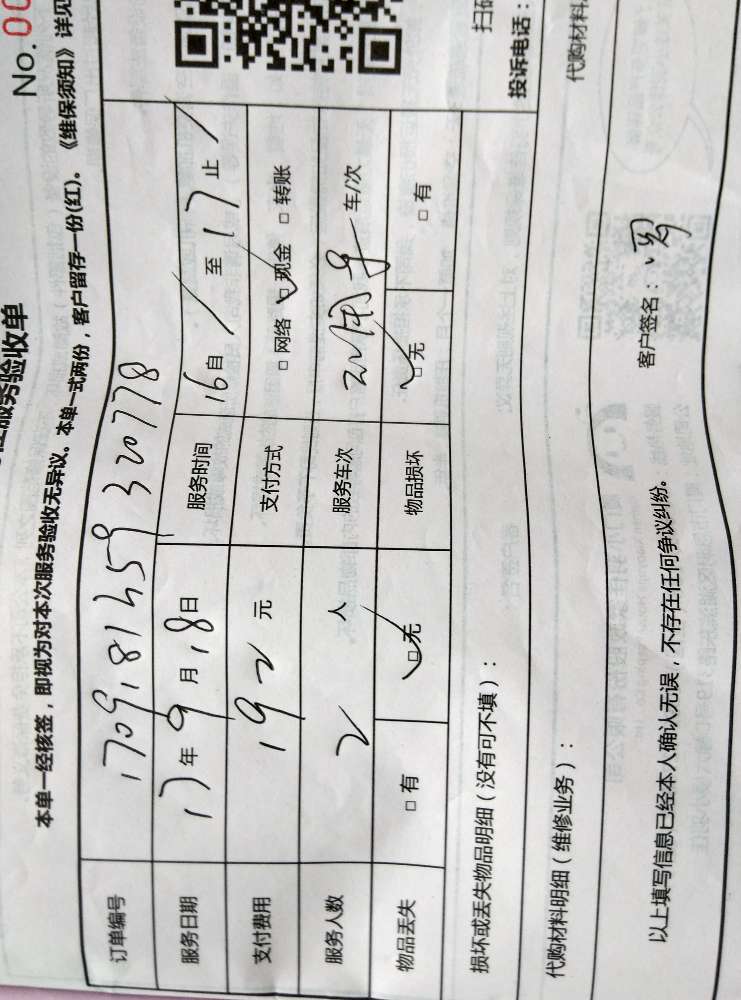 No.00
服务验收单
本单一经核签，即视为对本次服务验收无异议。本单一式两份，客户留存一份(红)。《维保须知》详见
订单编号 1709181459320778
服务日期 17年9月18日 服务时间 16自 至 17止
支付费用 192元 支付方式 □网络 □现金 □转账
服务人数 2人 服务车次 车/次
物品丢失 □有 □无 物品损坏 □无 □有
损坏或丢失物品明细（没有可不填）：
投诉电话：
代购材料明细（维修业务）：
代购材料
以上填写信息已经本人确认无误，不存在任何争议纠纷。 客户签名：